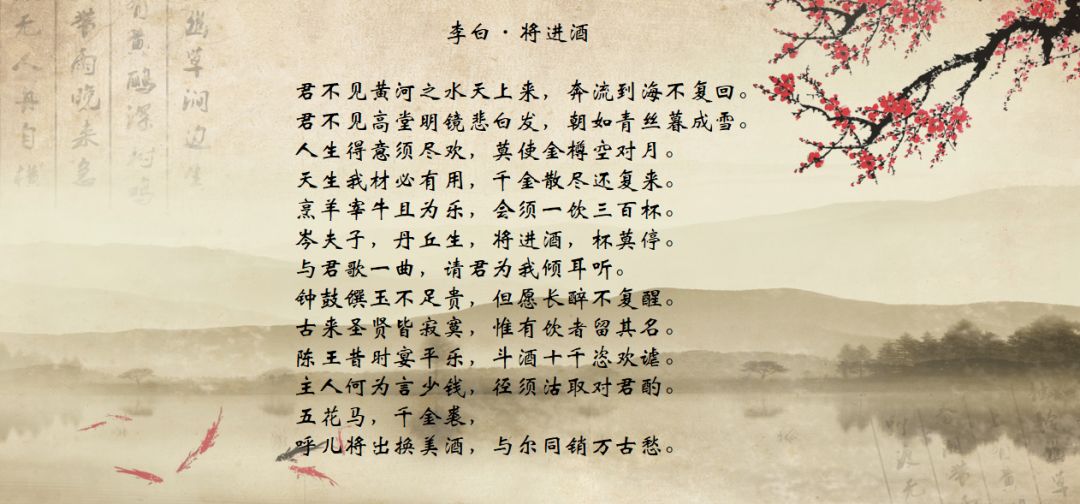 李白·将进酒
君不见黄河之水天上来，奔流到海不复回。
君不见高堂明镜悲白发，朝如青丝暮成雪。
人生得意须尽欢，莫使金樽空对月。
天生我材必有用，千金散尽还复来。
烹羊宰牛且为乐，会须一饮三百杯。
岑夫子，丹丘生，将进酒，杯莫停。
与君歌一曲，请君为我倾耳听。
钟鼓馔玉不足贵，但愿长醉不复醒。
古来圣贤皆寂寞，惟有饮者留其名。
陈王昔时宴平乐，斗酒十千恣欢谑。
主人何为言少钱，径须沽取对君酌。
五花马，千金裘，
呼儿将出换美酒，与尔同销万古愁。
幽草涧边生
黄鹂深
带雨晚来急
无人舟自横